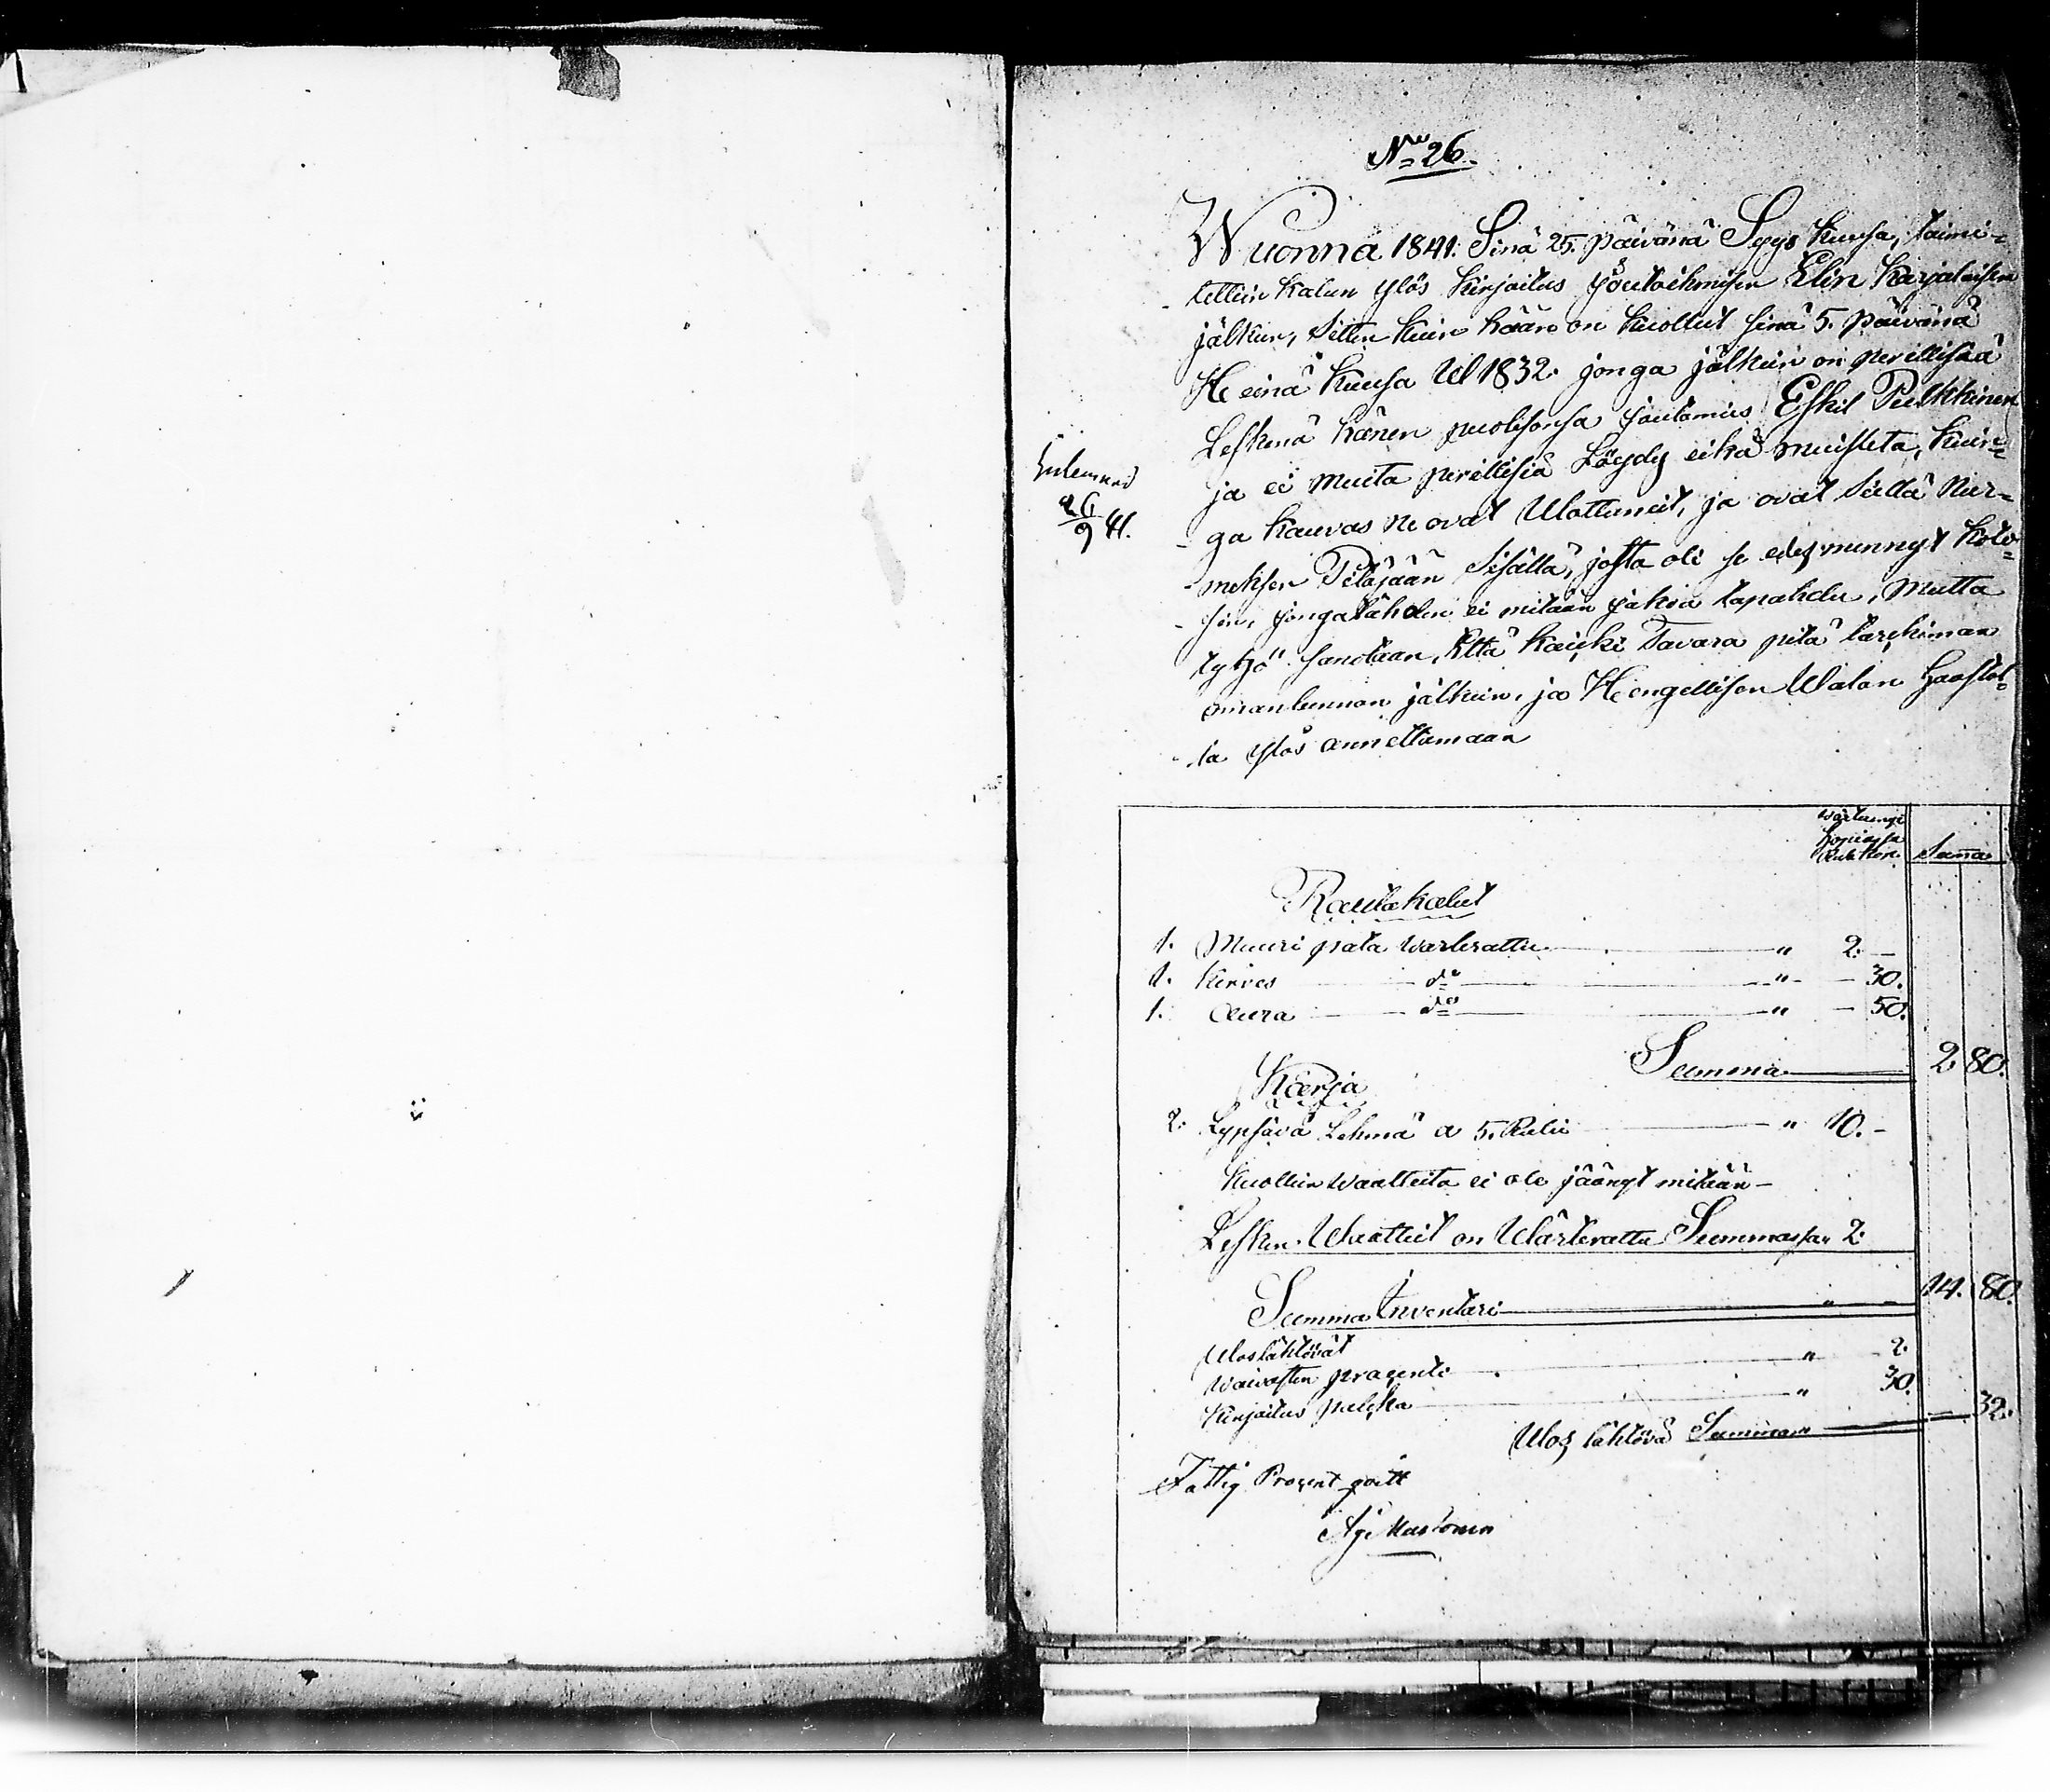 No 26.
Wuonna 1841. Sinä 25. päivänä Syys kuusa, taimi=
tettiin kalun ylös kirjoitus Joutoihmisen Elin Karjalaisen
jälkeen, sitten kuin hään on kuollut sinä 5. päivänä
Heinä kuusa W 1832. jonga jälkeen on perillisnä
Leskenä hänen puolisonsa joutomies Eskil Pulkkinen
ja ei muita perillisiä Löydy eikä muisteta, kuin=
ga kauvas ne ovat Ulottuneet, ja ovat sieltä Nur=
meksen Pitäjään sisältä, josta oli se edesmennyt koto=
sin, jonga tähden ei mitään jakoa tapahdu, Mutta
tykö sanotaan, Että kaicki Tavara pitä tarckiman
omantunnon jälkeen, ja Hengellisen Walan
ta ylös annettamaan
26/9 41.
Hopiassa
Sum̄a
Rautakalut
1. Muuri pata warderattu " 2. –
1. Kirves do " – 30.
1. Aura do " – 50.
Summa 2 80.
Karja
2. Lypsävä Lehmä a 5. Rulu " 10. –
Kuollen waatteita ei ole jäänyt mitään –
Lesken Waatteet on Wärderattu Summassa " 2.
Summa Inventari " – 14. 80.
Uloslähtövät
waivasten procenti " – 2.
Kirjoitus palcka " 30.
Ulos lähtövä Summa " – 32.
Fattig Procent qvitt